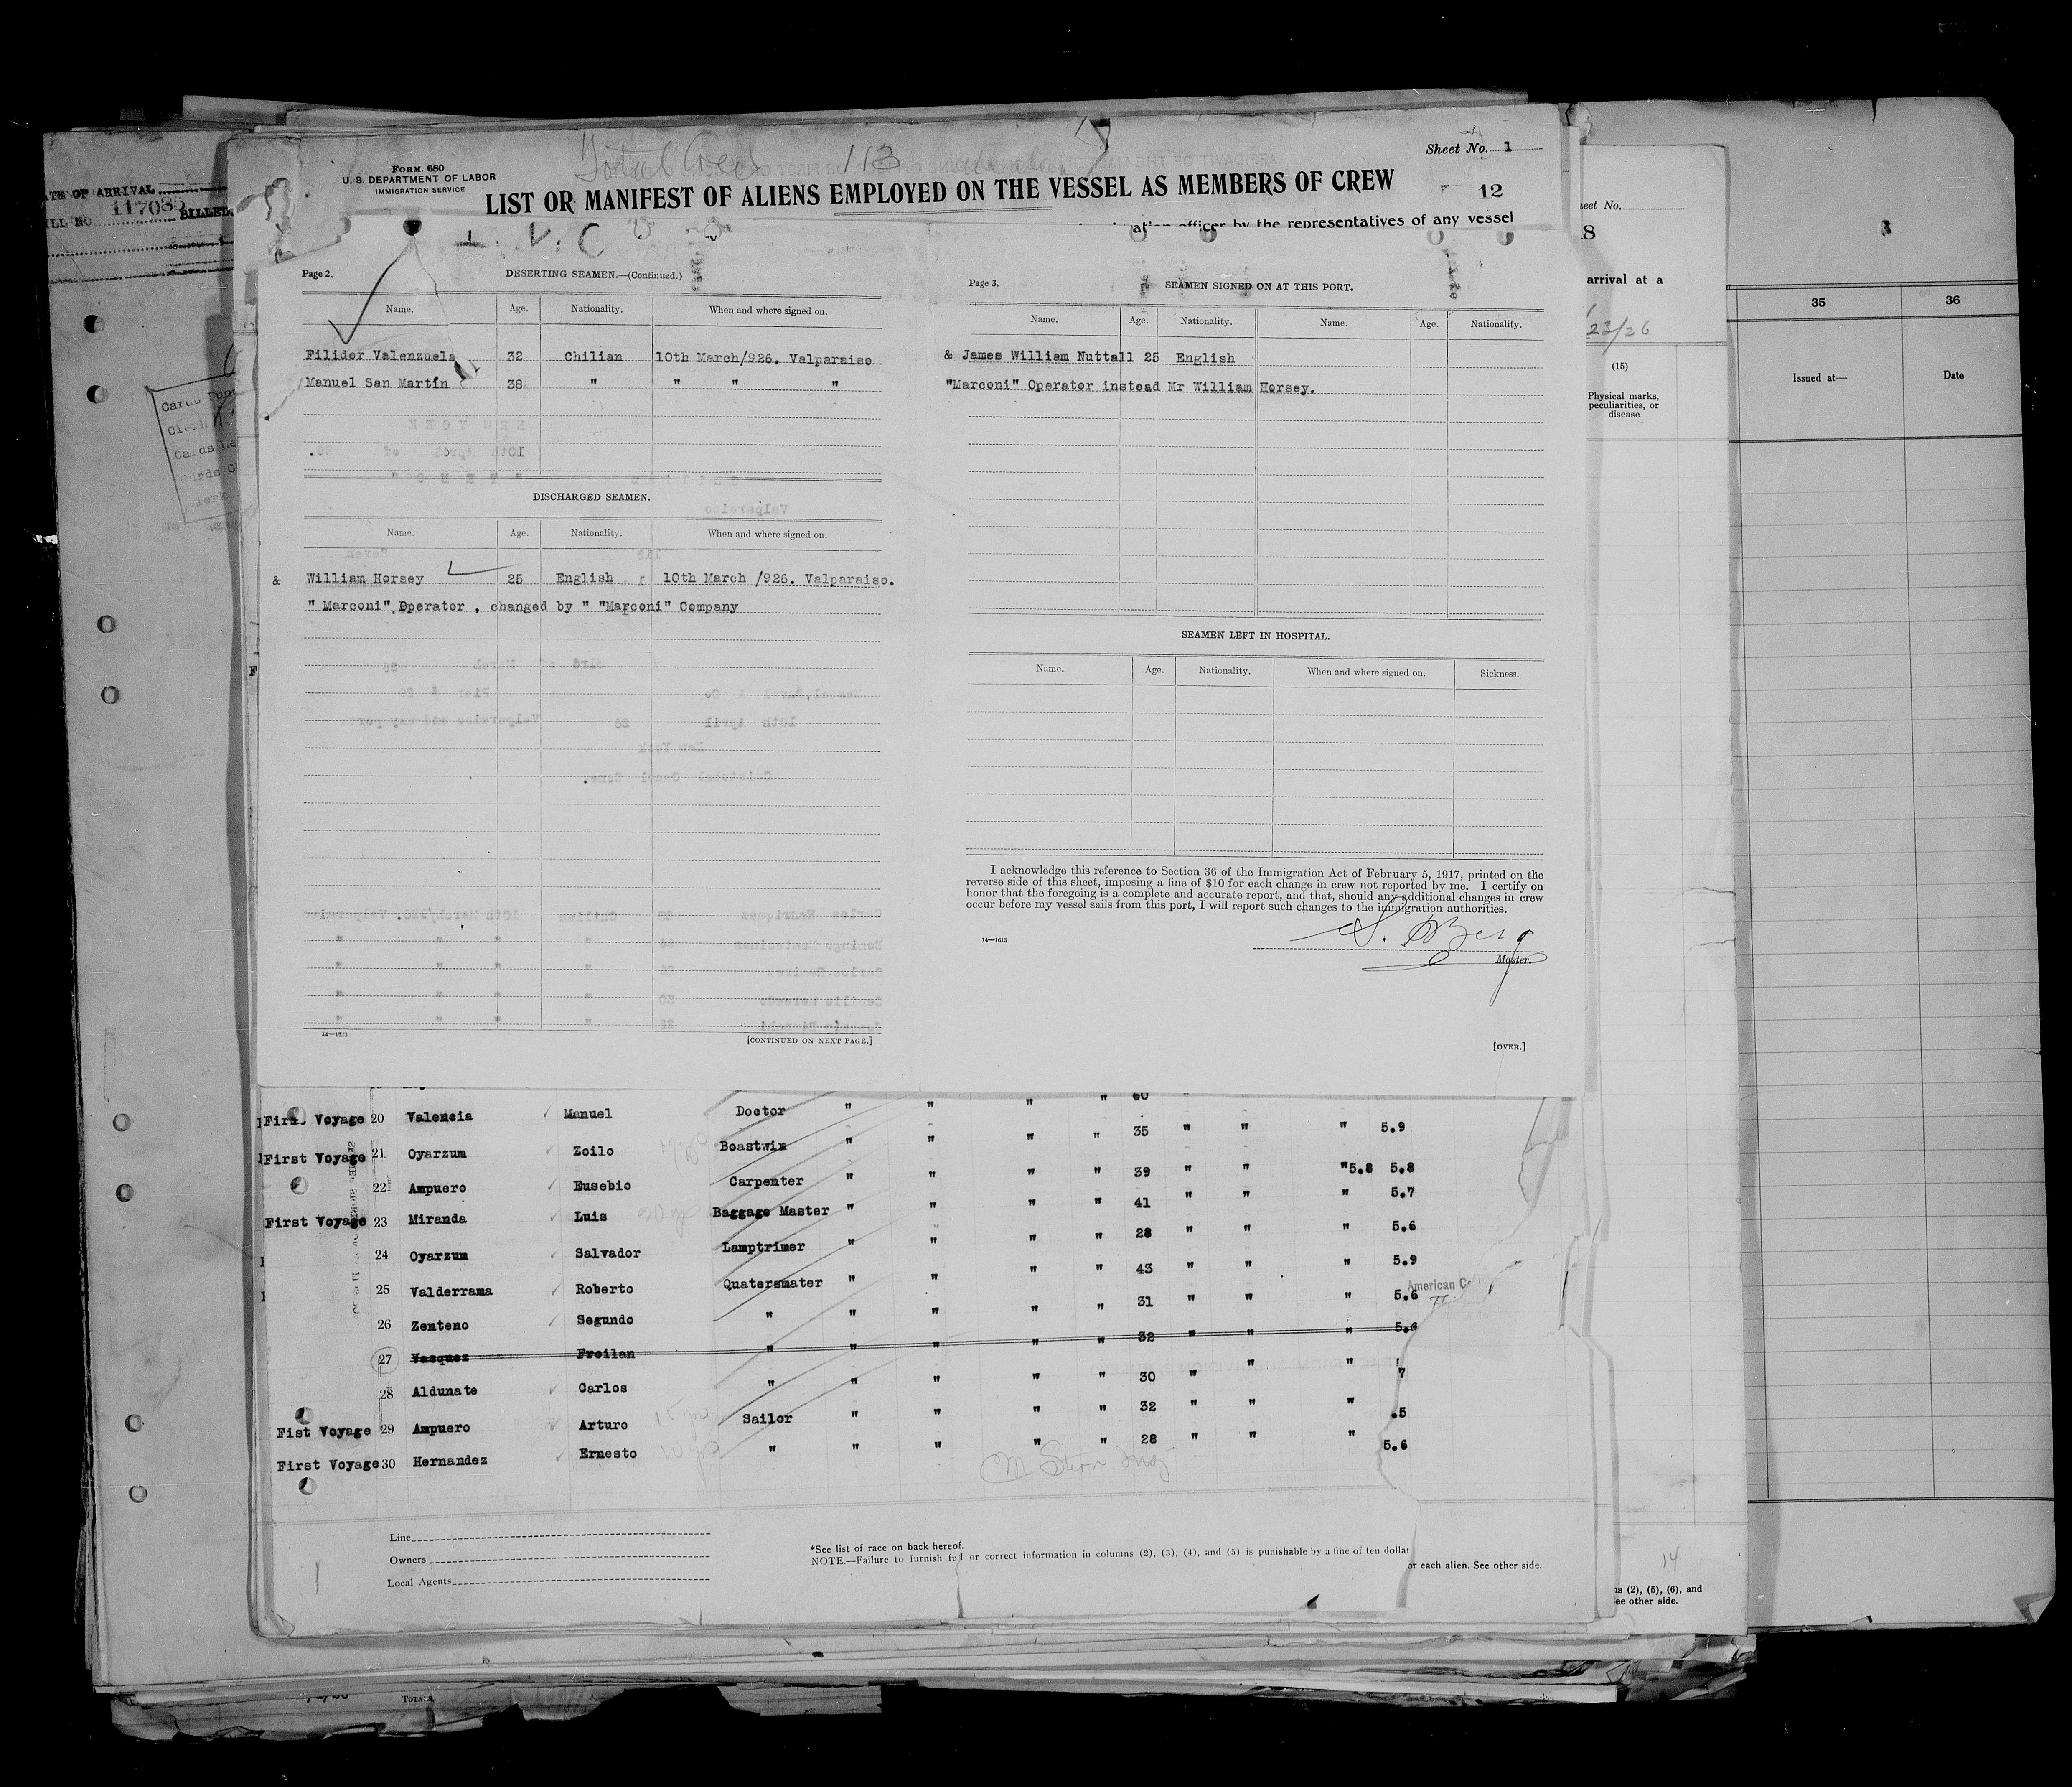 Total Crew 113
Sheet No. 1
FORM 680
U. S. DEPARTMENT OF LABOR
IMMIGRATION SERVICE
LIST OR MANIFEST OF ALIENS EMPLOYED ON THE VESSEL AS MEMBERS OF CREW
12
officer by the representatives of any vessel
OF ARRIVAL
117085
BILLED
Page 2.
DESERTING SEAMEN.—(Continued.)
Name. Age. Nationality. When and where signed on.
Filidor Valenzuela 32 Chilian 10th March/926. Valparaiso
Manuel San Martin 38 " " " "
DISCHARGED SEAMEN.
Name. Age. Nationality. When and where signed on.
& William Horsey 25 English 10th March /926. Valparaiso.
" Marconi" Operator , changed by " "Marconi" Company
14—1613
[CONTINUED ON NEXT PAGE.]
Page 3.
SEAMEN SIGNED ON AT THIS PORT.
Name. Age. Nationality. Name. Age. Nationality.
& James William Nuttall 25 English
"Marconi" Operator instead Mr William Horsey.
SEAMEN LEFT IN HOSPITAL.
Name. Age. Nationality. When and where signed on. Sickness.
I acknowledge this reference to Section 36 of the Immigration Act of February 5, 1917, printed on the
reverse side of this sheet, imposing a fine of $10 for each change in crew not reported by me. I certify on
honor that the foregoing is a complete and accurate report, and that, should any additional changes in crew
occur before my vessel sails from this port, I will report such changes to the immigration authorities.
14—1613
Master.
[OVER.]
First Voyage 20 Valencia Manuel Doctor " " " " 60
First Voyage 21 Oyarzum Zoilo Boastwin " " " " 35 " " " 5.9
22 Ampuero Eusebio Carpenter " " " " 39 " " "5.8 5.8
First Voyage 23 Miranda Luis Baggage Master " " " " 41 " " " 5.7
24 Oyarzum Salvador Lamptrimer " " " " 28 " " " 5.6
25 Valderrama Roberto Quatersmater " " " " 43 " " " 5.9
26 Zenteno Segundo " " " " " 31 " " " 5.6
27 Vasquez Froilan " " " " " 32 " " " 5.6
28 Aldunate Carlos " " " " " 30 " " " 7
Fist Voyage 29 Ampuero Arturo Sailor " " " " 32 " " " .5
First Voyage 30 Hernandez Ernesto " " " " " 28 " " " 5.6
American
Line
Owners
Local Agents
*See list of race on back hereof.
NOTE.—Failure to furnish or correct information in columns (2), (3), (4), and (5) is punishable by a fine of ten dollar
or each alien. See other side.
No.
8
arrival at a
23/26
(15)
Physical marks,
peculiarities, or
disease
35 36
Issued at— Date
14
(2), (5), (6), and
other side.